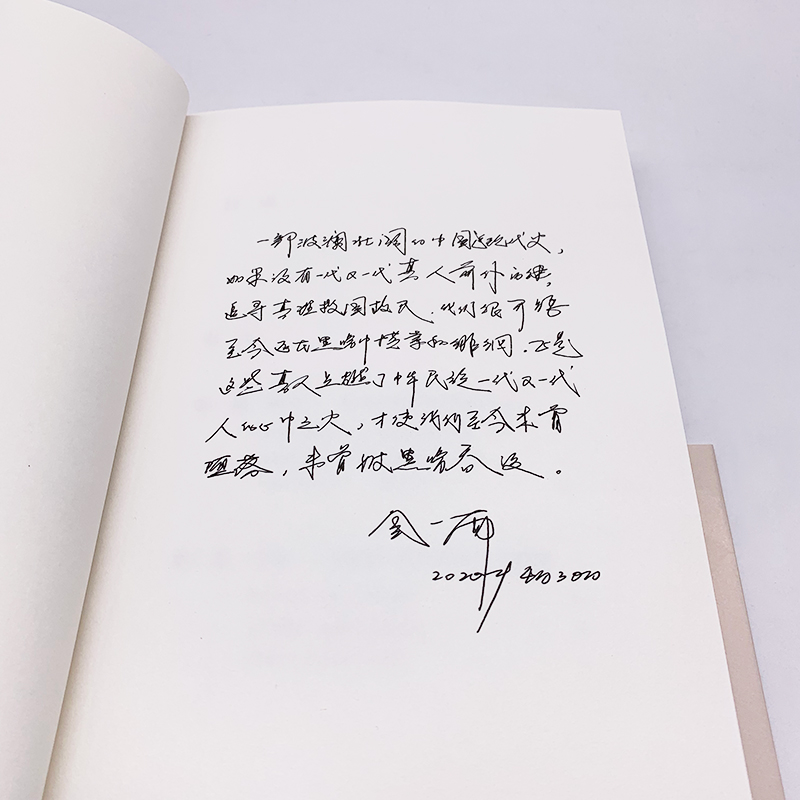 一部波澜壮阔的中国近现代史，
如果没有一代又一代真人前仆后继，
追寻真理救国救民，我们很可能
至今还在黑暗中摸索和徘徊。正是
这些真人点燃了中华民族一代又一代
人的心中之火，才使我们至今未曾
堕落，未曾被黑暗吞没。
金一南
2020年5月30日